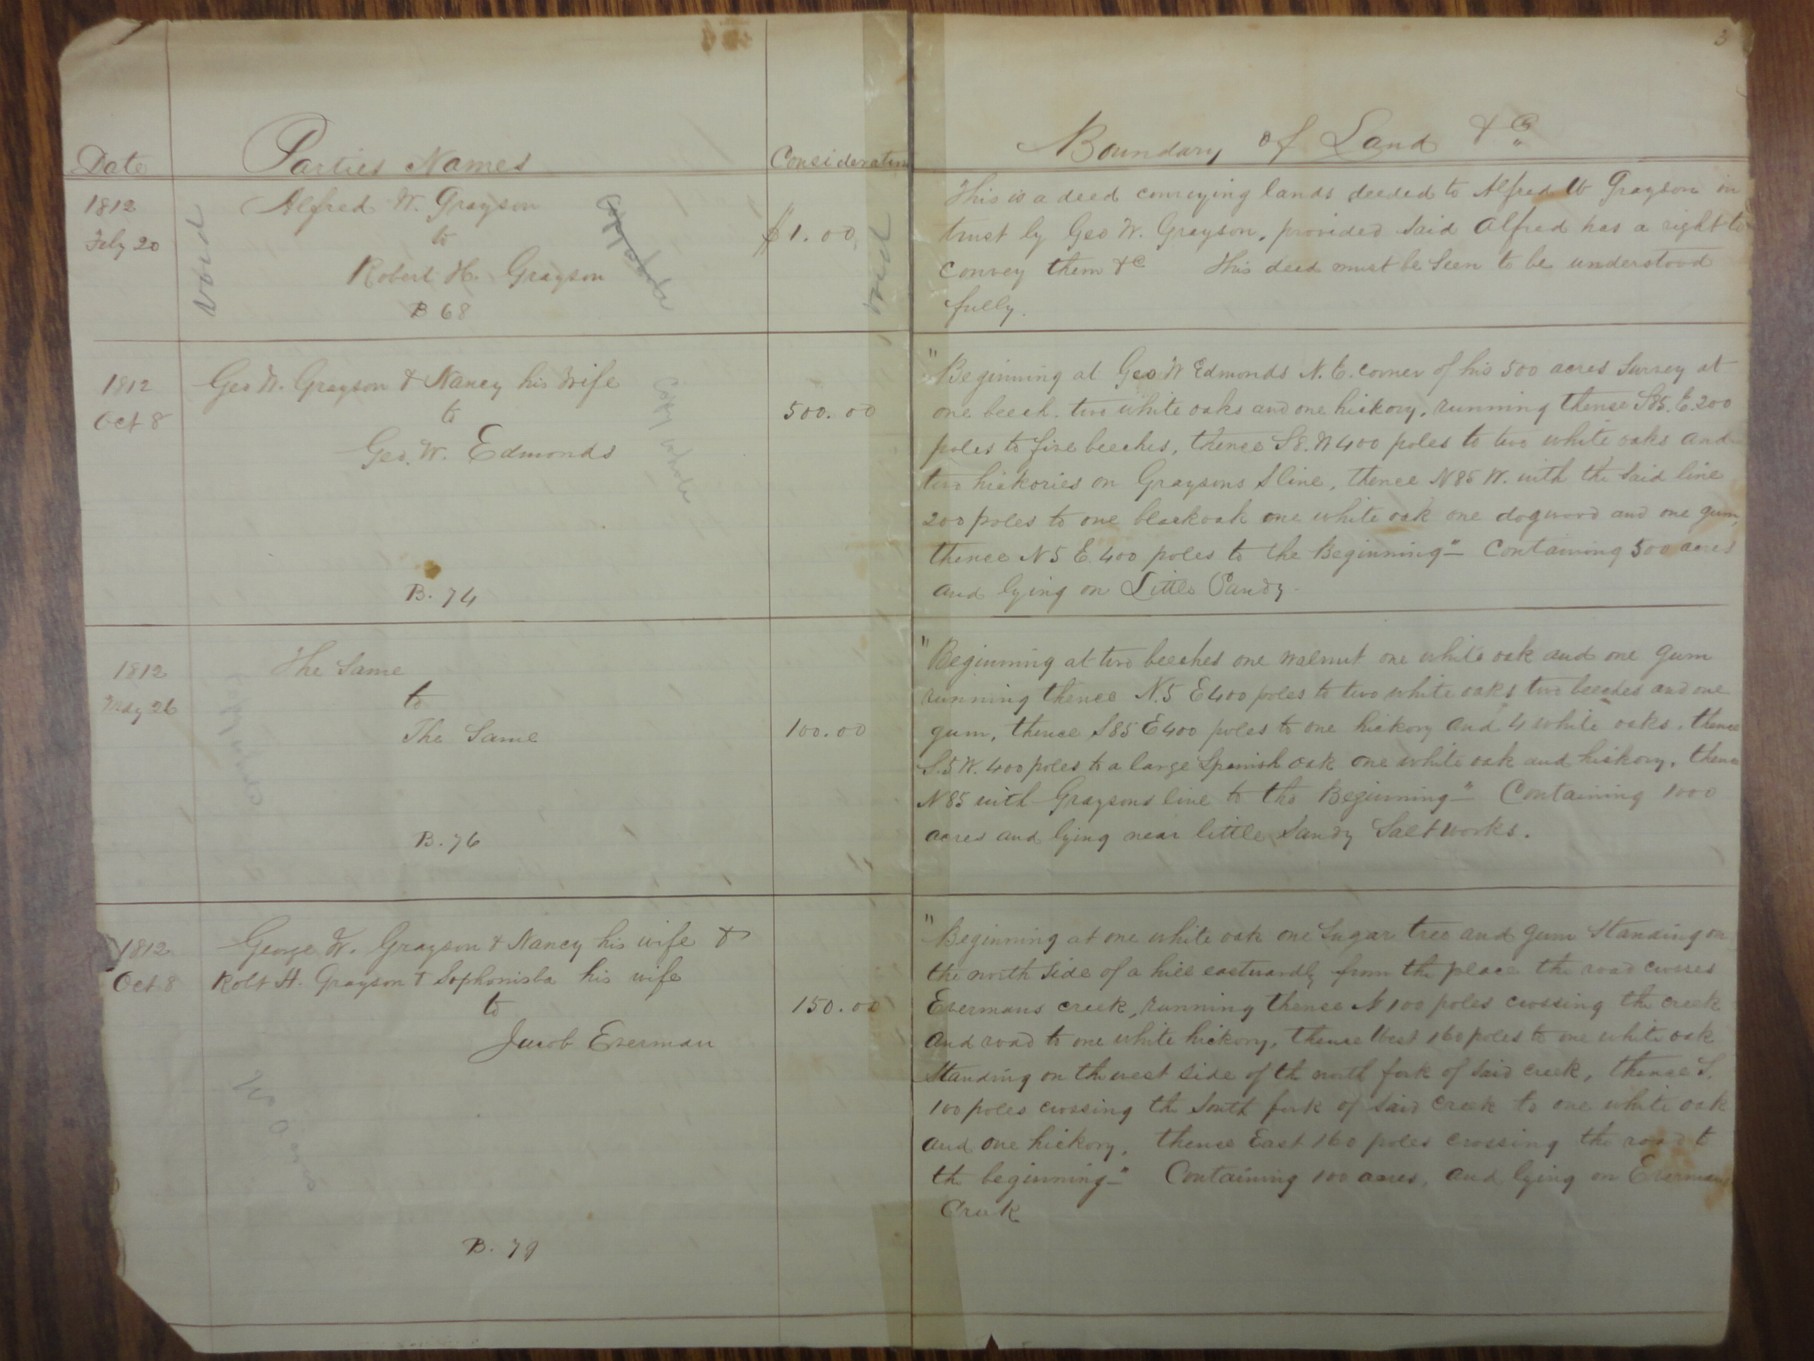 3
Date Parties Names Consideration Boundary of Land &c
1812
Feby 20
Void
Alfred W. Grayson
to
Robert H. Grayson
B 68
Copy whole
$1.00
Void
This is a deed conveying lands deeded to Alfred W Grayson in
trust by Geo W. Grayson, provided said Alfred has a right to
convey them &c This deed must be seen to be understood
fully.
1812
Oct 8
Geo W. Grayson & Nancy his wife
to
Geo. W. Edmonds
B. 74
Copy whole
500.00
"Beginning at Geo W Edmonds N. E. corner of his 500 acres survey at
one beech, two white oaks and one hickory, running thence S 85. E. 200
poles to five beeches, thence S 8. W 400 poles to two white oaks and
two hickories on Graysons S line, thence N 85 W. with the said line
200 poles to one blackoak one white oak one dogwood and one gum,
thence N 5 E. 400 poles to the Beginning" - Containing 500 acres
and lying on Little Sandy.
1812
May 26
The Same
to
The Same
B. 76
100.00
"Beginning at two beeches one walnut one white oak and one gum
running thence N. 5 E 400 poles to two white oaks two beeches and one
gum, thence S 85 E 400 poles to one hickory and 4 white oaks, thence
S. 5 W. 400 poles to a large Spanish oak one white oak and hickory, thence
N 85 with Graysons line to the Beginning" - Containing 1000
acres and lying near little Sandy Saltworks.
1812
Oct 8
George W. Grayson & Nancy his wife &
Robt H. Grayson & Sophonisba his wife
to
Jacob Everman
B. 79
150.00
"Beginning at one white oak one Sugar tree and gum Standing on
the north side of a hill eastwardly from the place the road crosses
Evermans creek, running thence N 100 poles crossing the creek
and road to one white hickory, thence West 160 poles to one white oak
Standing on the west side of th north fork of said creek, thence S.
100 poles crossing th South fork of said creek to one white oak
and one hickory, thence East 160 poles crossing the road to
th beginning" - Containing 100 acres, and lying on Evermans
Creek